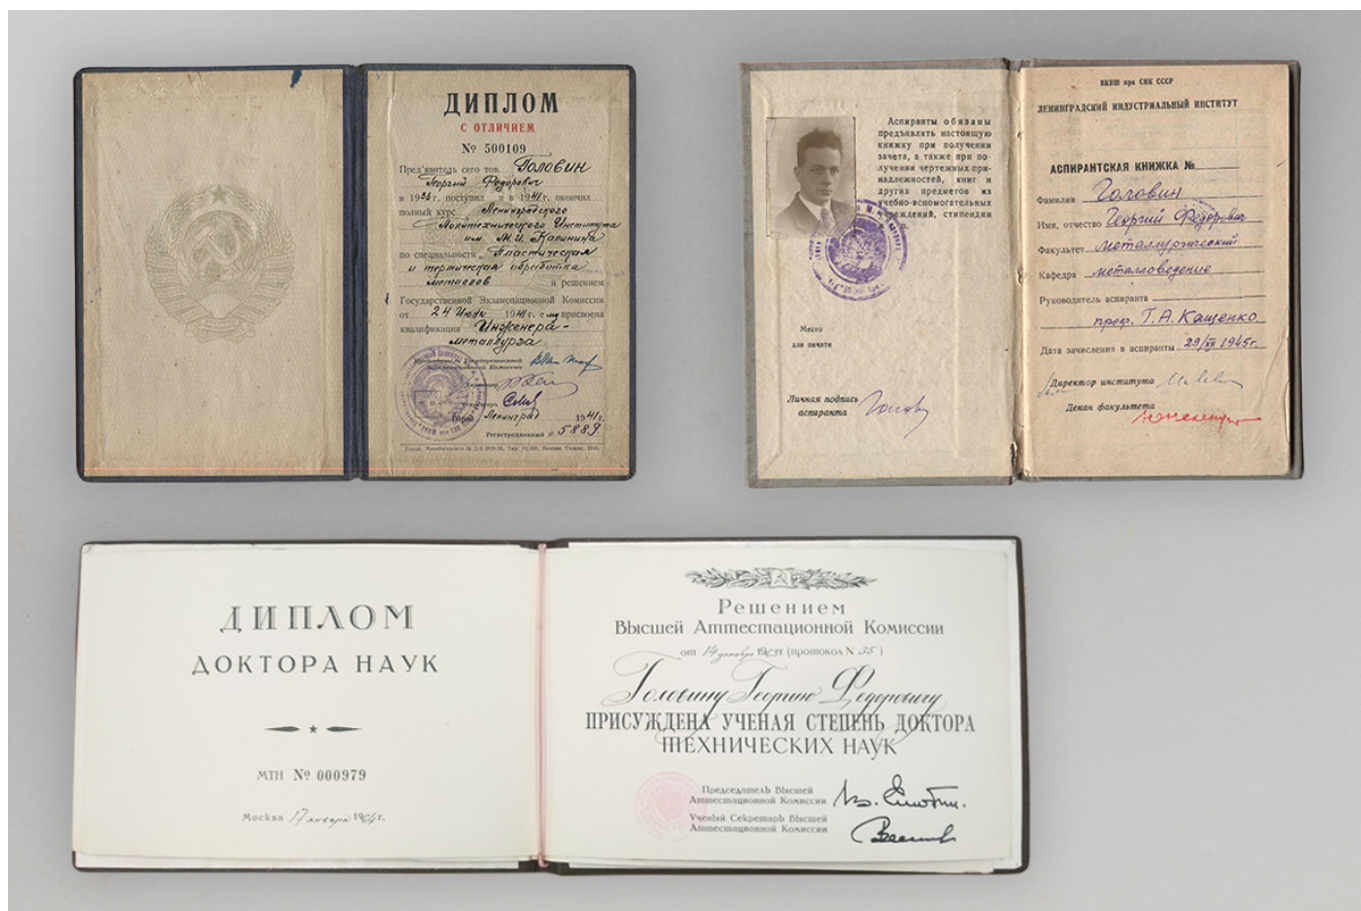 ДИПЛОМ
С ОТЛИЧИЕМ
№ 500109
Пред'явитель сего тов. Головин
Георгий Федорович
в 1936 г. поступил и в 1941 г. окончил
полный курс Ленинградского
Политехнического Института
им. М. И. Калинина
по специальности Пластическая
и термическая обработка
металлов и решением
Государственной Экзаменационной Комиссии
от 24 Июня 1941 г. ему присвоена
квалификация Инженера-
металлурга
Город Ленинград 1941 г.
Регистрационный № 5889
Аспиранты обязаны
предъявлять настоящую
книжку при получении
зачета, а также при по-
лучении чертежных при-
надлежностей, книг и
других предметов из
учебно-вспомогательных
учреждений, стипендии
Место
для печати
Личная подпись
аспиранта
ВКВШ при СНК СССР
ЛЕНИНГРАДСКИЙ ИНДУСТРИАЛЬНЫЙ ИНСТИТУТ
АСПИРАНТСКАЯ КНИЖКА №
Фамилия Головин
Имя, отчество Георгий Федорович
Факультет металлургический
Кафедра металловедение
Руководитель аспиранта
проф. Г. А. Кащенко
Дата зачисления в аспиранты 29/XII 1945г.
Директор института
Декан факультета
ДИПЛОМ
ДОКТОРА НАУК
МТН № 000979
Москва 17 января 1964 г.
Решением
Высшей Аттестационной Комиссии
от 14 декабря г (протокол N 55)
Головину Георгию Федоровичу
ПРИСУЖДЕНА УЧЕНАЯ СТЕПЕНЬ ДОКТОРА
ТЕХНИЧЕСКИХ НАУК
Председатель Высшей
Аттестационной Комиссии
Ученый Секретарь Высшей
Аттестационной Комиссии